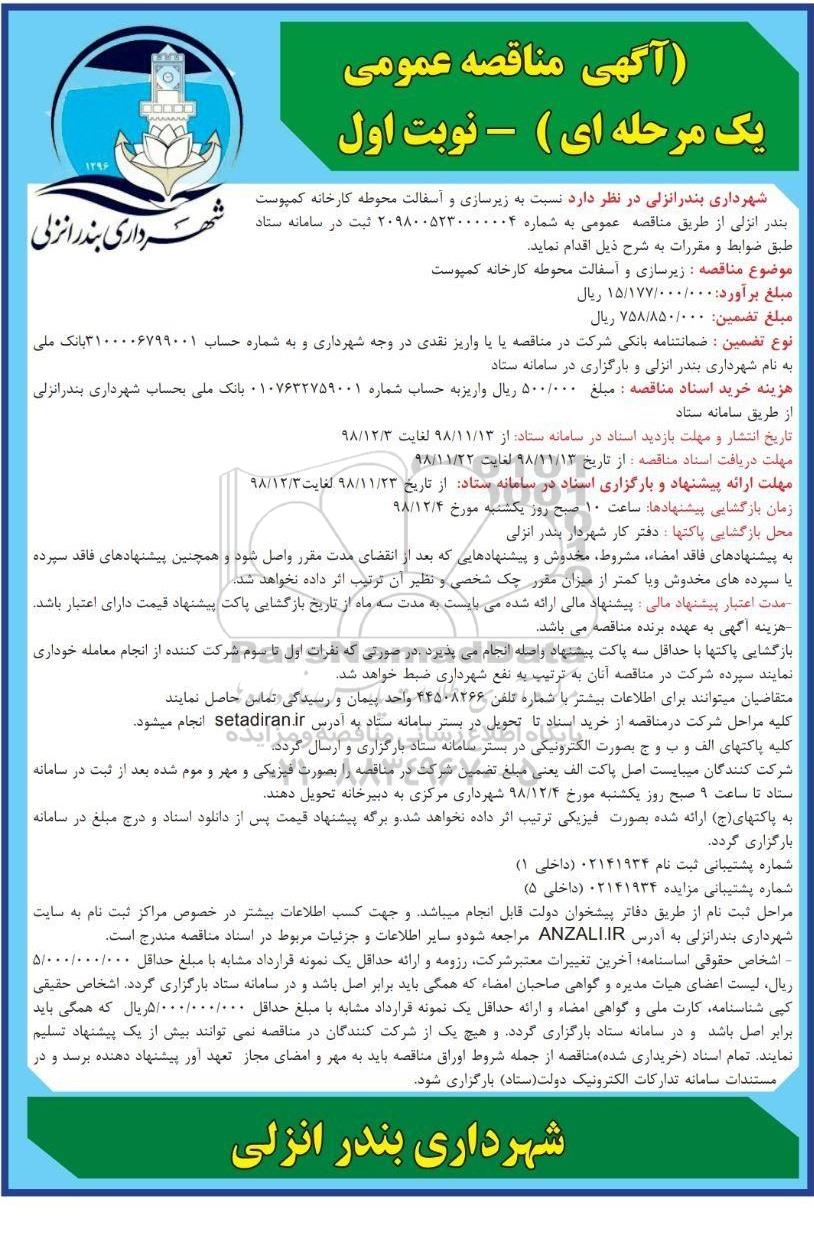 (آگهی مناقصه عمومی
یک مرحله ای ) - نوبت اول
۱۲۹۶
شهرداری بندرانزلی
شهرداری بندرانزلی در نظر دارد نسبت به زیرسازی و آسفالت محوطه کارخانه کمپوست
بندر انزلی از طریق مناقصه عمومی به شماره ۲۰۹۸۰۰۵۲۳۰۰۰۰۰۰۴ ثبت در سامانه ستاد
طبق ضوابط و مقررات به شرح ذیل اقدام نماید.
موضوع مناقصه : زیرسازی و آسفالت محوطه کارخانه کمپوست
مبلغ برآورد:۱۵/۱۷۷/۰۰۰/۰۰۰ ریال
مبلغ تضمین: ۷۵۸/۸۵۰/۰۰۰ ریال
نوع تضمین : ضمانتنامه بانکی شرکت در مناقصه یا یا واریز نقدی در وجه شهرداری و به شماره حساب ۳۱۰۰۰۰۶۷۹۹۰۰۱بانک ملی
به نام شهرداری بندر انزلی و بارگزاری در سامانه ستاد
هزینه خرید اسناد مناقصه : مبلغ ۵۰۰/۰۰۰ ریال واریزبه حساب شماره ۰۱۰۷۶۳۲۷۵۹۰۰۱ بانک ملی بحساب شهرداری بندرانزلی
از طریق سامانه ستاد
تاریخ انتشار و مهلت بازدید اسناد در سامانه ستاد: از ۹۸/۱۱/۱۳ لغایت ۹۸/۱۲/۳
مهلت دریافت اسناد مناقصه : از تاریخ ۹۸/۱۱/۱۳ لغایت ۹۸/۱۱/۲۲
مهلت ارائه پیشنهاد و بارگزاری اسناد در سامانه ستاد: از تاریخ ۹۸/۱۱/۲۳ لغایت۹۸/۱۲/۳
زمان بازگشایی پیشنهادها: ساعت ۱۰ صبح روز یکشنبه مورخ ۹۸/۱۲/۴
محل بازگشایی پاکتها : دفتر کار شهردار بندر انزلی
به پیشنهادهای فاقد امضاء، مشروط، مخدوش و پیشنهادهایی که بعد از انقضای مدت مقرر واصل شود و همچنین پیشنهادهای فاقد سپرده
یا سپرده های مخدوش ویا کمتر از میزان مقرر چک شخصی و نظیر آن ترتیب اثر داده نخواهد شد.
-مدت اعتبار پیشنهاد مالی : پیشنهاد مالی ارائه شده می بایست به مدت سه ماه از تاریخ بازگشایی پاکت پیشنهاد قیمت دارای اعتبار باشد.
-هزینه آگهی به عهده برنده مناقصه می باشد.
بازگشایی پاکتها با حداقل سه پاکت پیشنهاد واصله انجام می پذیرد .در صورتی که نفرات اول تا سوم شرکت کننده از انجام معامله خوداری
نمایند سپرده شرکت در مناقصه آنان به ترتیب به نفع شهرداری ضبط خواهد شد.
متقاضیان میتوانند برای اطلاعات بیشتر با شماره تلفن ۴۴۵۰۸۲۶۶ واحد پیمان و رسیدگی تماس حاصل نمایند
کلیه مراحل شرکت درمناقصه از خرید اسناد تا تحویل در بستر سامانه ستاد به آدرس setadiran.ir انجام میشود.
کلیه پاکتهای الف و ب و ج بصورت الکترونیکی در بستر سامانه ستاد بارگزاری و ارسال گردد.
شرکت کنندگان میبایست اصل پاکت الف یعنی مبلغ تضمین شرکت در مناقصه را بصورت فیزیکی و مهر و موم شده بعد از ثبت در سامانه
ستاد تا ساعت ۹ صبح روز یکشنبه مورخ ۹۸/۱۲/۴ شهرداری مرکزی به دبیرخانه تحویل دهند.
به پاکتهای(ج) ارائه شده بصورت فیزیکی ترتیب اثر داده نخواهد شد.و برگه پیشنهاد قیمت پس از دانلود اسناد و درج مبلغ در سامانه
بارگزاری گردد.
شماره پشتیبانی ثبت نام ۰۲۱۴۱۹۳۴ (داخلی ۱)
شماره پشتیبانی مزایده ۰۲۱۴۱۹۳۴ (داخلی ۵)
مراحل ثبت نام از طریق دفاتر پیشخوان دولت قابل انجام میباشد. و جهت کسب اطلاعات بیشتر در خصوص مراکز ثبت نام به سایت
شهرداری بندرانزلی به آدرس ANZALI.IR مراجعه شودو سایر اطلاعات و جزئیات مربوط در اسناد مناقصه مندرج است.
- اشخاص حقوقی اساسنامه؛ آخرین تغییرات معتبرشرکت، رزومه و ارائه حداقل یک نمونه قرارداد مشابه با مبلغ حداقل ۵/۰۰۰/۰۰۰/۰۰۰
ریال، لیست اعضای هیات مدیره و گواهی صاحبان امضاء که همگی باید برابر اصل باشد و در سامانه ستاد بارگزاری گردد. اشخاص حقیقی
کپی شناسنامه، کارت ملی و گواهی امضاء و ارائه حداقل یک نمونه قرارداد مشابه با مبلغ حداقل ۵/۰۰۰/۰۰۰/۰۰۰ریال که همگی باید
برابر اصل باشد و در سامانه ستاد بارگزاری گردد. و هیچ یک از شرکت کنندگان در مناقصه نمی توانند بیش از یک پیشنهاد تسلیم
نمایند. تمام اسناد (خریداری شده)مناقصه از جمله شروط اوراق مناقصه باید به مهر و امضای مجاز تعهد آور پیشنهاد دهنده برسد و در
مستندات سامانه تدارکات الکترونیک دولت(ستاد) بارگزاری شود.
شهرداری بندر انزلی
ParsNamadData
پایگاه اطلاع رسانی مناقصه و مزایده
۰۲۱-۸۸۳۴۹۶۷۰-۵